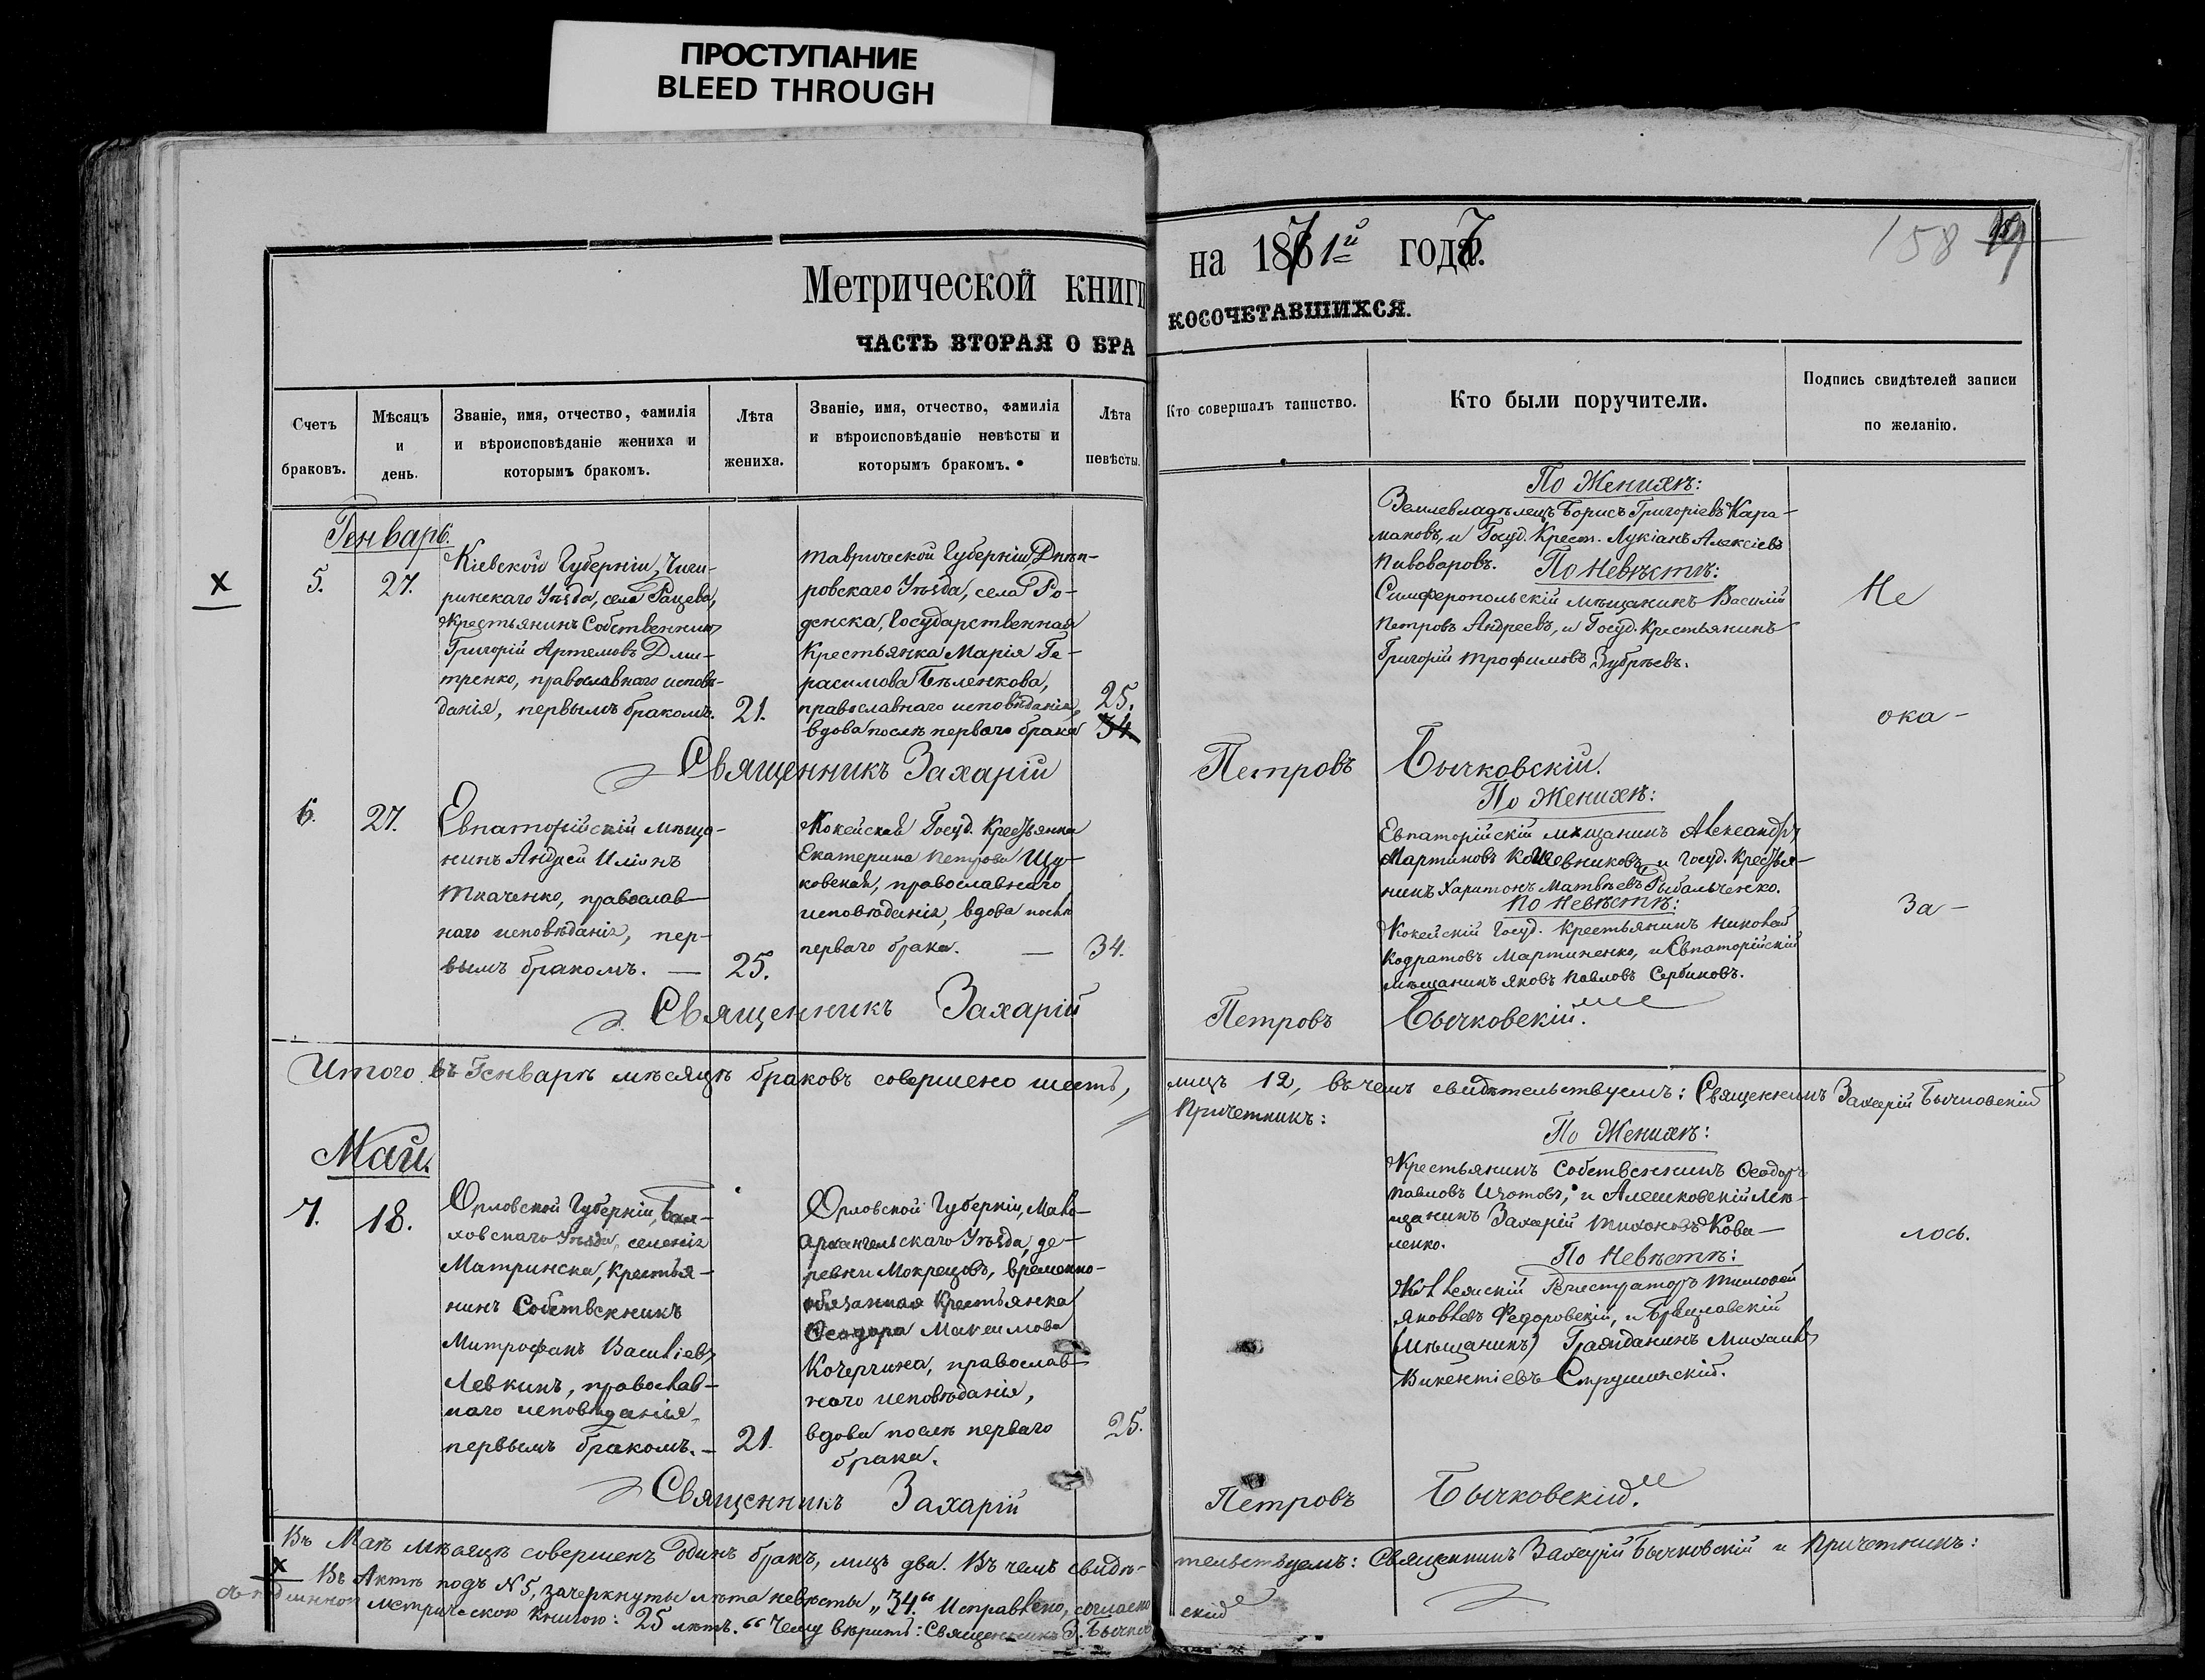 ПРОСТУПАНИЕ
BLEED THROUGH
Метрической книги
на 1871й года.
158
19
ЧАСТЬ ВТОРАЯ О БРА
КОСОЧЕТАВШИХСЯ.
Счетъ браковъ.
Мѣсяцъ и день.
Званіе, имя, отчество, фамилія
и вѣроисповѣданіе жениха и
которымъ бракомъ.
Лѣта жениха.
Званіе, имя, отчество, фамилія
и вѣроисповѣданіе невѣсты и
которымъ бракомъ.
Лѣта невѣсты.
Кто совершалъ таинство.
Кто были поручители.
Подпись свидѣтелей записи
по желанію.
Генварь.
х
5.
27.
Кіевской Губерніи, Чиги-
ринскаго Уѣзда, села Рацева,
Крестьянинъ Собственникъ
Григорій Артемовъ Дми-
тренко, православнаго исповѣ-
данія, первымъ бракомъ.
21.
Таврической Губерніи Днѣп-
ровскаго Уѣзда, села Ро-
денска, Государственная
Крестьянка Марія Ге-
расимова Бѣленкова,
православнаго исповѣданія,
вдова послѣ перваго брака
25.
34.
По Женихѣ:
Землевладѣлецъ Борисъ Григоріевъ Кара-
мановъ, и Госуд. Крест. Лукіанъ Алексіевъ
Пивоваровъ.
По Невѣстѣ:
Симферопольскій мѣщанинъ Василій
Петровъ Андреевъ, и Госуд. Крестьянинъ
Григорій Трофимовъ Зубрѣевъ.
Не
ока-
Священникъ Захарій
Петровъ
Бычковскій.
6.
27.
Евпаторійскій мѣща-
нинъ Андрей
Ткаченко, православ-
наго исповѣданія, пер-
вымъ бракомъ. —
25.
Госуд. Крестьянка
Екатерина Петрова
православнаго
исповѣданія, вдова послѣ
перваго брака. —
34.
По Женихѣ:
Евпаторійскій мѣщанинъ Александръ
Мартиновъ Кожевниковъ и Госуд. Крестья-
нинъ Харитонъ Матвѣевъ Рыбальченко.
По Невѣстѣ:
Госуд. Крестьянинъ Николай
Кодратовъ Мартиненко, и Евпаторійскій
мѣщанинъ Яковъ Павловъ Сербиновъ.
за-
Священникъ Захарій
Петровъ
Бычковскій.
Итого въ Генварѣ мѣсяцѣ браковъ совершено шесть,
лицъ 12, въ чемъ свидѣтельствуемъ: Священникъ Захарій Бычковскій
Причетникъ:
Май.
7.
18.
Орловской Губерніи, Бол-
ховскаго Уѣзда, селенія
Крестья-
нинъ Собственникъ
Митрофанъ Василіевъ
Левкинъ, православ-
наго исповѣданія,
первымъ бракомъ. —
21.
Орловской Губерніи, Мало-
архангельскаго Уѣзда, де-
ревни Мокрецовъ, временно-
обязанная Крестьянка
Ѳеодора Максимова
Кочергина, православ-
наго исповѣданія,
вдова послѣ перваго
брака.
25.
По Женихѣ:
Крестьянинъ Собственникъ Ѳеодоръ
Павловъ Изотовъ, и Алешковскій Мѣ-
щанинъ Захарій Тихоновъ Кова-
ленко.
По Невѣстѣ:
Коллежскій Регистраторъ Тимофей
Яковлевъ Федоровскій, и
(Мѣщанинъ) Гражданинъ Михаилъ
Викентіевъ
лось.
Священникъ Захарій
Петровъ
Бычковскій.
Въ Маѣ мѣсяцѣ совершенъ одинъ бракъ, лицъ два. Въ чемъ свидѣ-
тельствуемъ: Священникъ Захарій Бычковскій и Причетникъ:
х Въ Актѣ подъ №5, зачеркнуты лѣта невѣсты „34.“ Исправлено, согласно
съ подлинною метрическою книгою: 25 лѣтъ.“ Чему вѣрить: Священникъ З. Бычков
скій